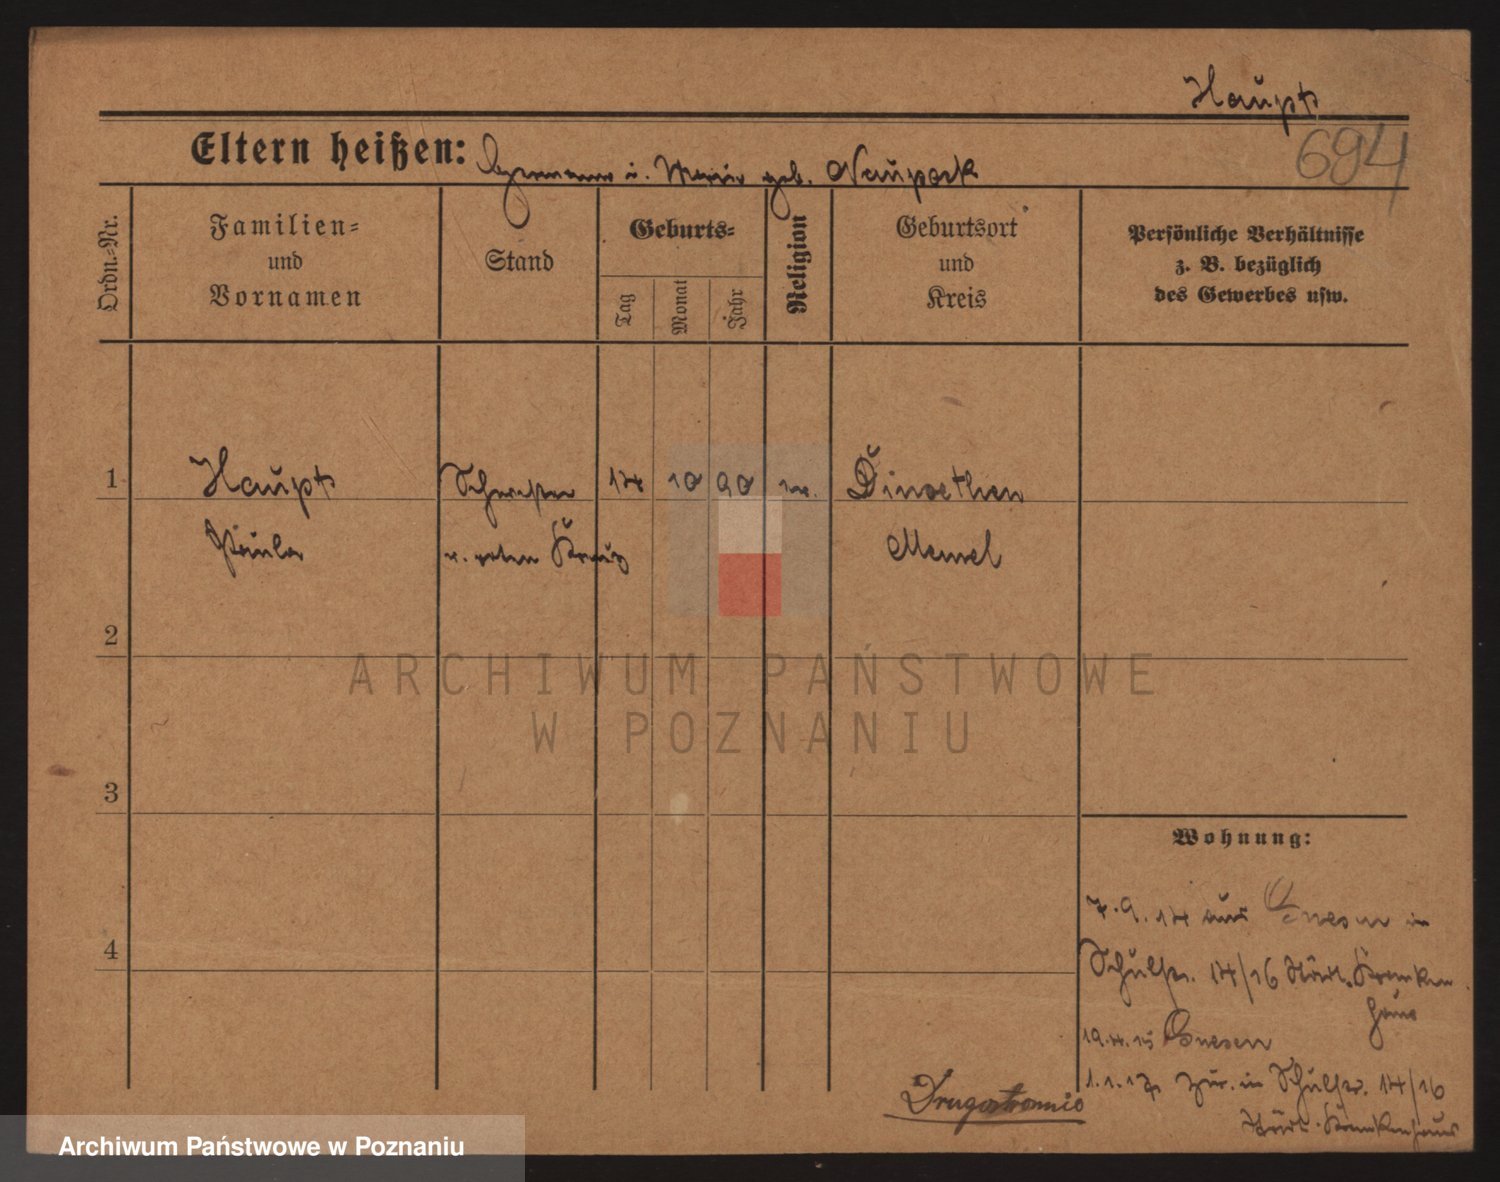 Haupt
694
Eltern heißen: Hermann u. Marie geb. Naupack
Ordn.-Nr.
Familien-
und
Vornamen
Stand
Geburts-
Tag
Monat
Jahr
Religion
Geburtsort
und
Kreis
Persönliche Verhältnisse
z. B. bezüglich
des Gewerbes usw.
1
Haupt
Paula
Schwester
v. roten Kreuz
14 10 90
Memel
2
3
4
Wohnung:
7.9.14 aus Gnesen in
Schulstr. 14/16 Städt. Kranken
haus
Gnesen
zur. in Schulstr. 14/16
Städt. Krankenhaus
Drugostronnie
ARCHIWUM PAŃSTWOWE
W POZNANIU
Archiwum Państwowe w Poznaniu